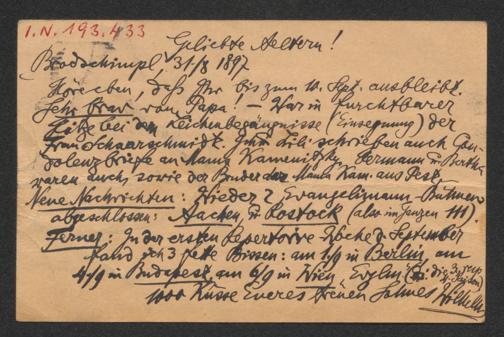 I.N. 193.433
Geliebte Aeltern!
31/8 1897
Höre eben, daß Ihr bis zum 10. Sept. ausbleibt.
Sehr brav von Papa! – War in furchtbarer
Hitze bei dem Leichenbegängnisse (Einsegnung) der
Frau Schaarschmidt. Ich u. Lili schrieben auch Con-
dolenzbriefe an Mama Kamenitzky, Hermann u. Bertha
waren auch, sowie der Bruder der Mama Kam. aus Pest.
Neue Nachrichten: Wieder 2 Evangelimann-Bühnen
abgeschlossen: Aachen u. Rostock (also im Ganzen 111).
Ferner: In der ersten Repertoire Woche d. September
fand ich 3 fette Bissen: am 1/9 in Berlin, am
4/9 in Budapest, am 6/9 in Wien, Evglm
1000 Küsse Eueres treuen Sohnes Wilhelm